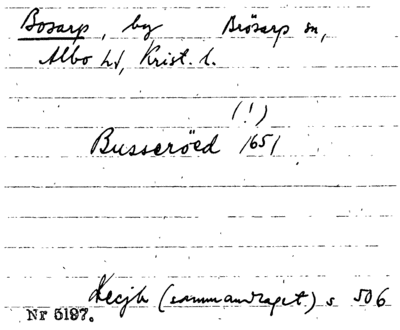 Bosarp, by Brösarp sn,
Albo hd, Krist. l.
(!)
Busseröed 1651
(sammandraget) s 506
Nr 5197.